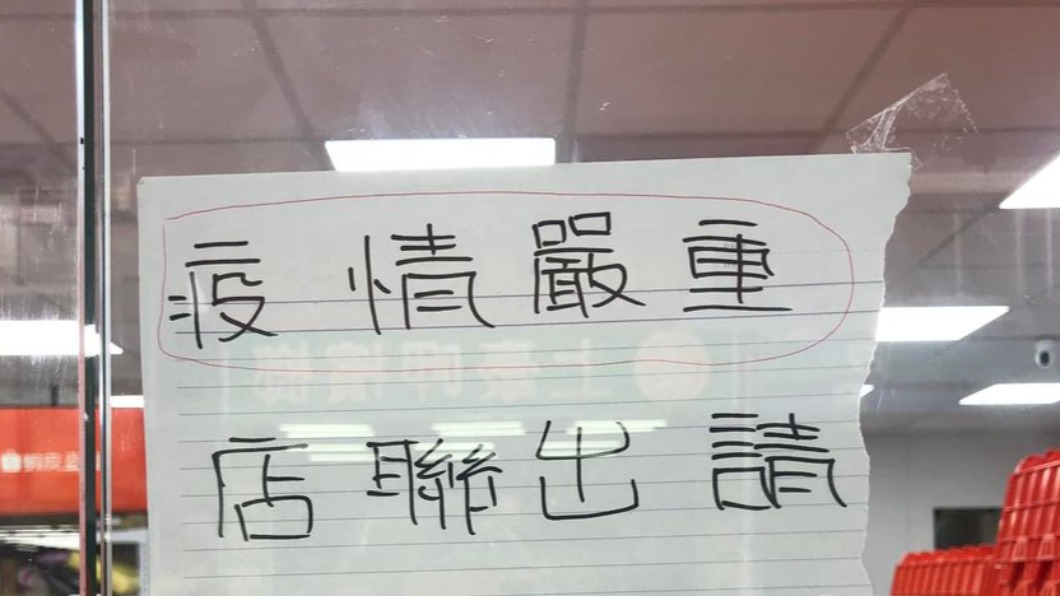 疫情嚴重
店聯出請
蝦皮